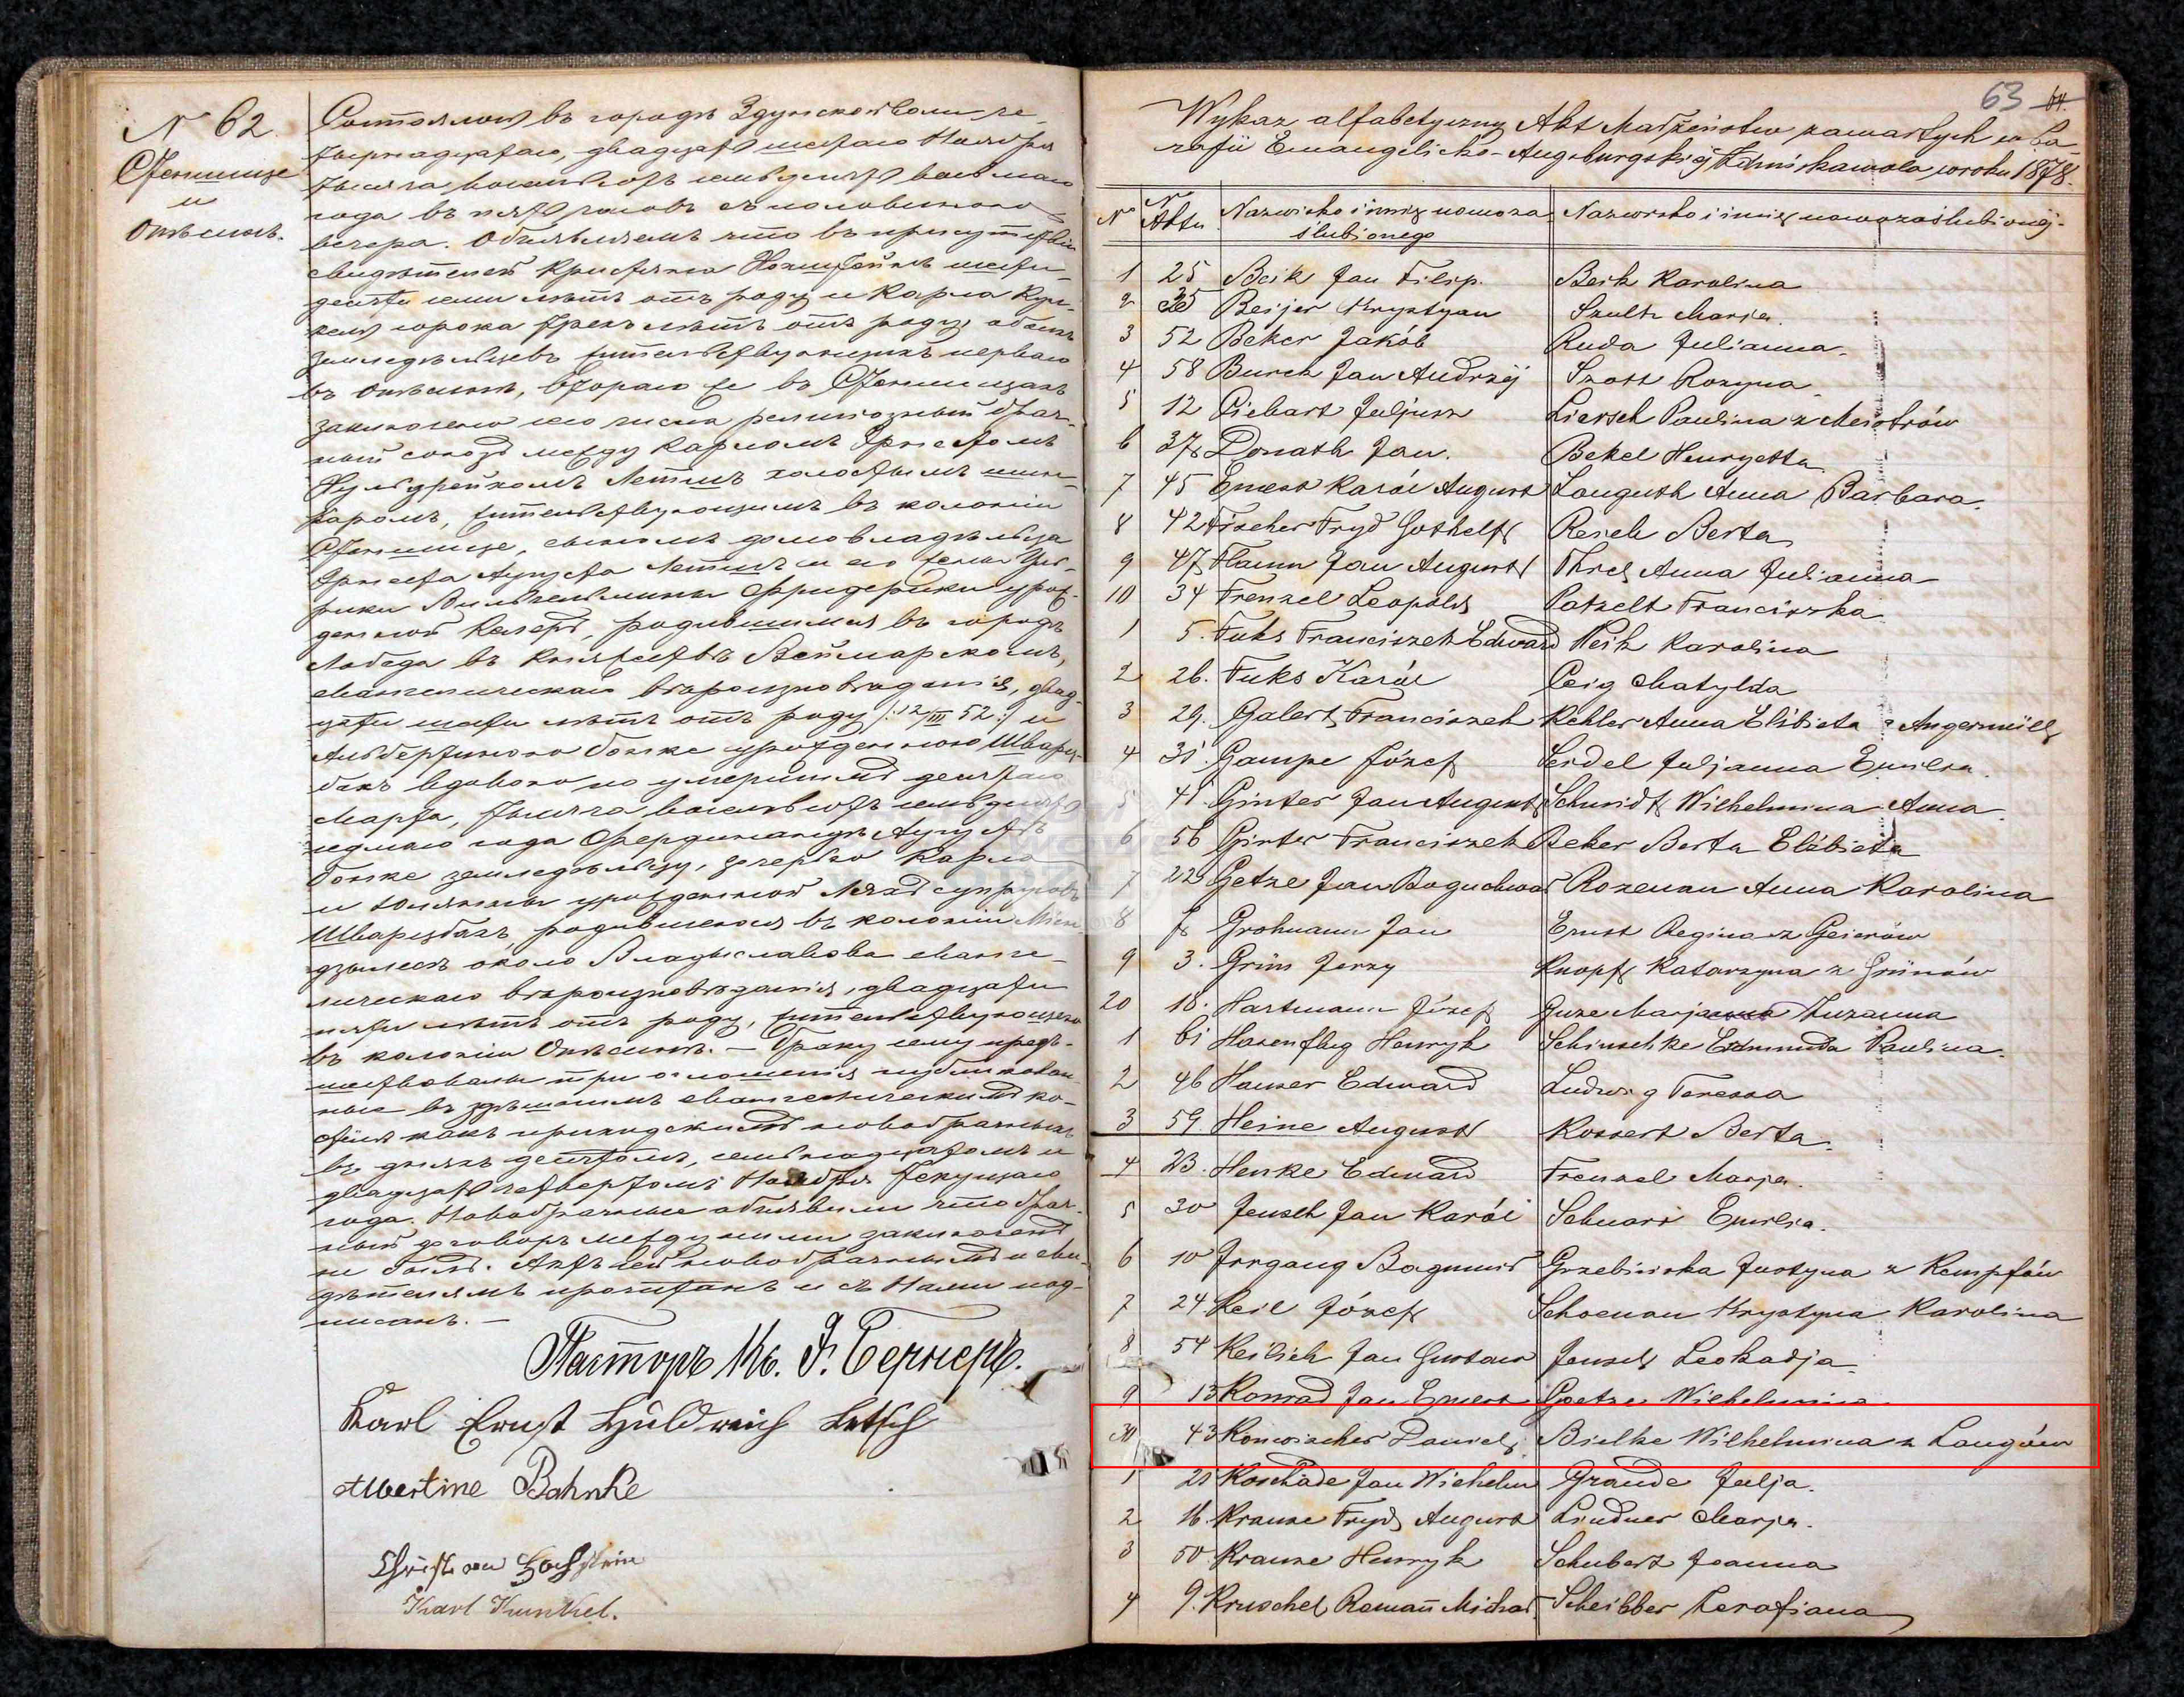 N 62
Стенщице
и
Опѣсинъ.
Состоялось въ городѣ Здунской воли че-
тырнадцатаго, двадцать шестаго Ноября
тысяча восемьсотъ семьдесятъ восьмаго
года въ пять часовъ съ половиною
вечера. Объявляемъ что въ присутствіи
свидѣтелей Кристіана шести-
десяти семи лѣтъ отъ роду и Карла Кун-
кель сорока трехъ лѣтъ отъ роду, обоихъ
земледѣльцевъ жительствующихъ перваго
въ втораго же въ
заключено сего числа религіозный брач-
ный союзъ между Карломъ Эрнестомъ
холостымъ
жительствующимъ въ колоніи
сыномъ домовладѣльца
Эрнеста Августа и его жены
Вильгельмины Фридерики урож-
денной родившимся въ городѣ
Лобеда въ Княжествѣ Веймарскомъ,
евангелическаго вѣроисповѣданія, двад-
цати шести лѣтъ отъ роду /:12/III 52:/ и
Альбертиною Бонке урожденною Шварц-
бахъ вдовою по умершемъ десятаго
Марта, тысяча восемьсотъ семьдесятъ
седмаго года Фердинандѣ Августѣ
Бонке земледѣльцу, дочерью Карла
и урожденной супруговъ
Шварцбахъ, родившеюся въ колоніи
около Владиславова еванге-
лическаго вѣроисповѣданія, двадцати
пяти лѣтъ отъ роду, жительствующею
въ колоніи – Браку сему пред-
шествовали три оглашенія публикован-
ные въ здѣшнемъ евангелическомъ ко-
стелѣ какъ приходскомъ новобрачныхъ
въ дняхъ десятомъ, семнадцатомъ и
двадцать четвертомъ Ноября текущаго
года. Новобрачные объявили что брач-
ный договоръ между ними заключенъ
не былъ. Актъ сей новобрачнымъ и сви-
дѣтелямъ прочитанъ и съ Нами под-
писанъ. –
Пасторъ Э. Бернеръ.
Karl Ernst Huldreich Letsch
Albertine Bahnke
Christian
Karl Kunkel.
63 64.
Wykaz alfabetyczny Akt Małżeństw zawartych w Pa-
rafii Ewangelicko-Augsburgskiej Zduńskawola w roku 1878.
No N Aktu Nazwisko i imię nowoza- Nazwisko i imię nowozaślubionéj.
ślubionego
1 25 Beik Jan Filip. Beik Karolina
2 35 Beijer Krystyan Szultz Marja.
3 52 Beker Jakób Ruda Julianna.
4 58 Burch Jan Andrzéj Szott Rozyna
5 12 Ciebart Juljusz Liersch Paulina z Meistrów
6 37 Donath Jan. Bekel Henryetta
7 45 Ernest Karól August Languth Anna Barbara.
8 42 Fischer Fryd Gothelf Resch Berta
9 47 Flaum Jan August Anna Julianna
10 34 Frenzel Leopold Patzelt Franciszka
1 5. Fuks Franciszek Edward Peik Karolina
2 26. Fuks Karól Ceig Matylda
3 29. Galert Franciszek Kehler Anna Elżbieta z Angermüll
4 31. Gampe Józef Serdel Juljanna Emilia
5 41 Ginter Jan August Schmidt Wilhelmina Anna.
6 56 Ginter Franciszek Beker Berta Elżbieta
7 22 Getze Jan Bogumił Rozenau Anna Karolina
8 8 Grohmann Jan Ernst Regina z Geierów
9 3. Grün Jerzy Knopf Katarzyna z Grünów
20 18. Hartmann Józef Guze Marjanna Zuzanna
1 61 Hasenflug Henryk Schinschke Paulina.
2 46 Hauser Edward Ludwig Teressa
3 59. Heine August Kossert Berta.
4 23. Henke Edward Frenzel Marja.
5 30 Jensch Jan Karól Schwarz Emilia.
6 10 Jrrgang Bogumił Grzebińska Justyna z Kempfów
7 24 Keil Józef Schoenau Krystyna Karolina
8 54 Keilich Jan Gustaw Jensch Leokadja
9 13 Konrad Jan Ernest Goetze Wilhelmina.
30 43 Koniwischer Daniel, Bielke Wilhelmina z Langów
1 21 Koschade Jan Wilhelm Grande Julja.
2 16. Krauze Fryd August Lindner Marja.
3 50 Krauze Henryk Schubert Joanna
4 9. Kruschel Roman Michał Scheibler Serafiana